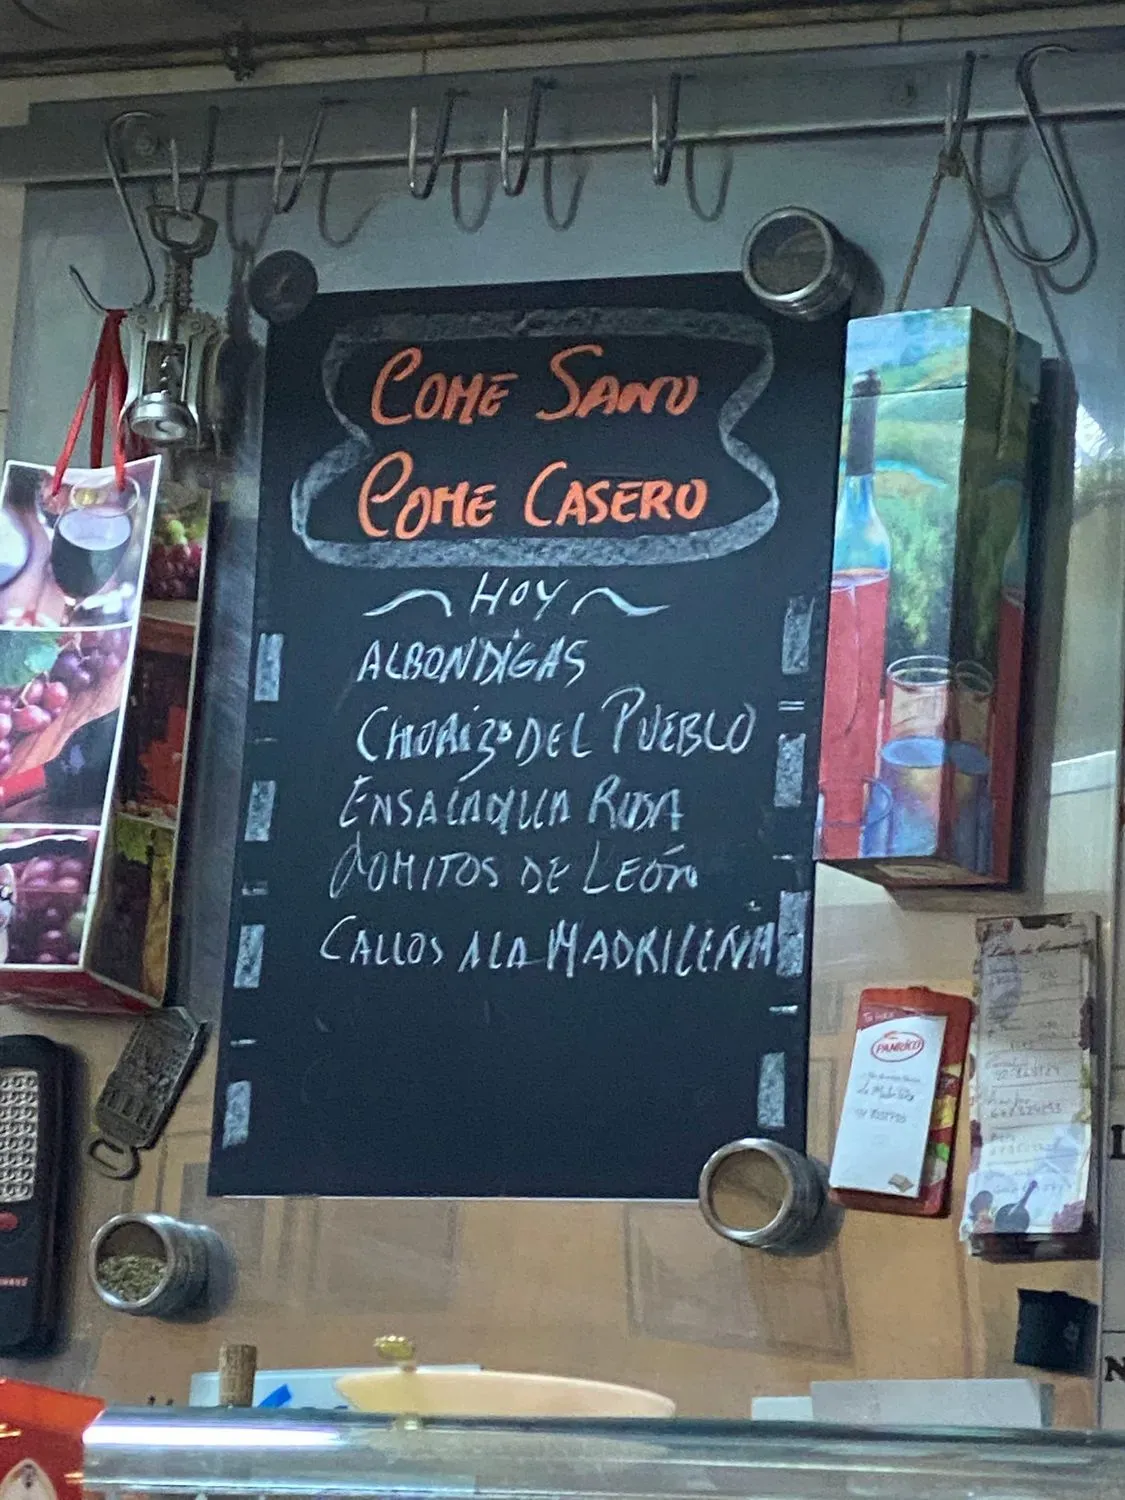 COME SANO
COME CASERO
HOY
ALBONDIGAS
CHORIZO DEL PUEBLO
ENSALADILLA RUSA
LOMITOS DE LEÓN
CALLOS A LA MADRILEÑA
PANRICO